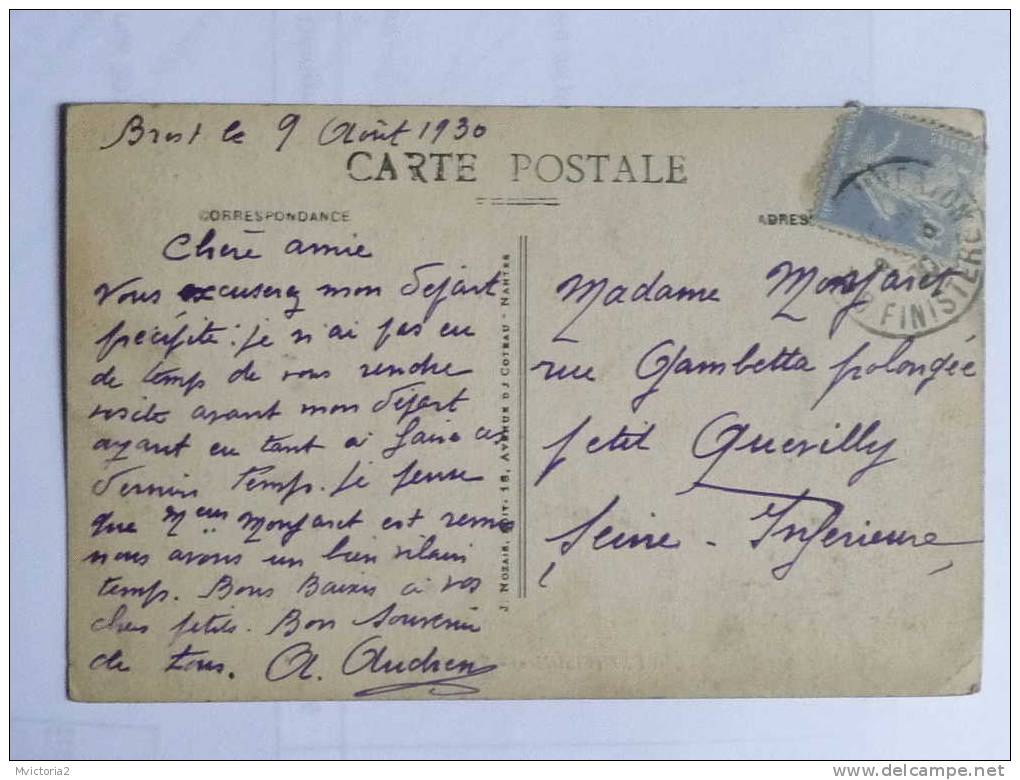 Brest le 9 Août 1930
CARTE POSTALE
CORRESPONDANCE
ADRES
Chère amie
Vous excuserez mon départ
précipité: je n'ai pas eu
de temps de vous rendre
visite avant mon départ
ayant eu tant à faire ces
derniers temps. Je pense
que Meur Monfaret est remis
nous avons un bien vilain
temps. Bons Baisers à vos
chers petits. Bon souvenir
de tous. A. Audren
J. NOZAIS, EDIT. 18, AVENUE DU COTEAU - NANTES
Madame Monfaret
rue Gambetta prolongée
petit Quevilly
Seine-Inférieure
FINISTERE
Mvictoria2
delcampe.net